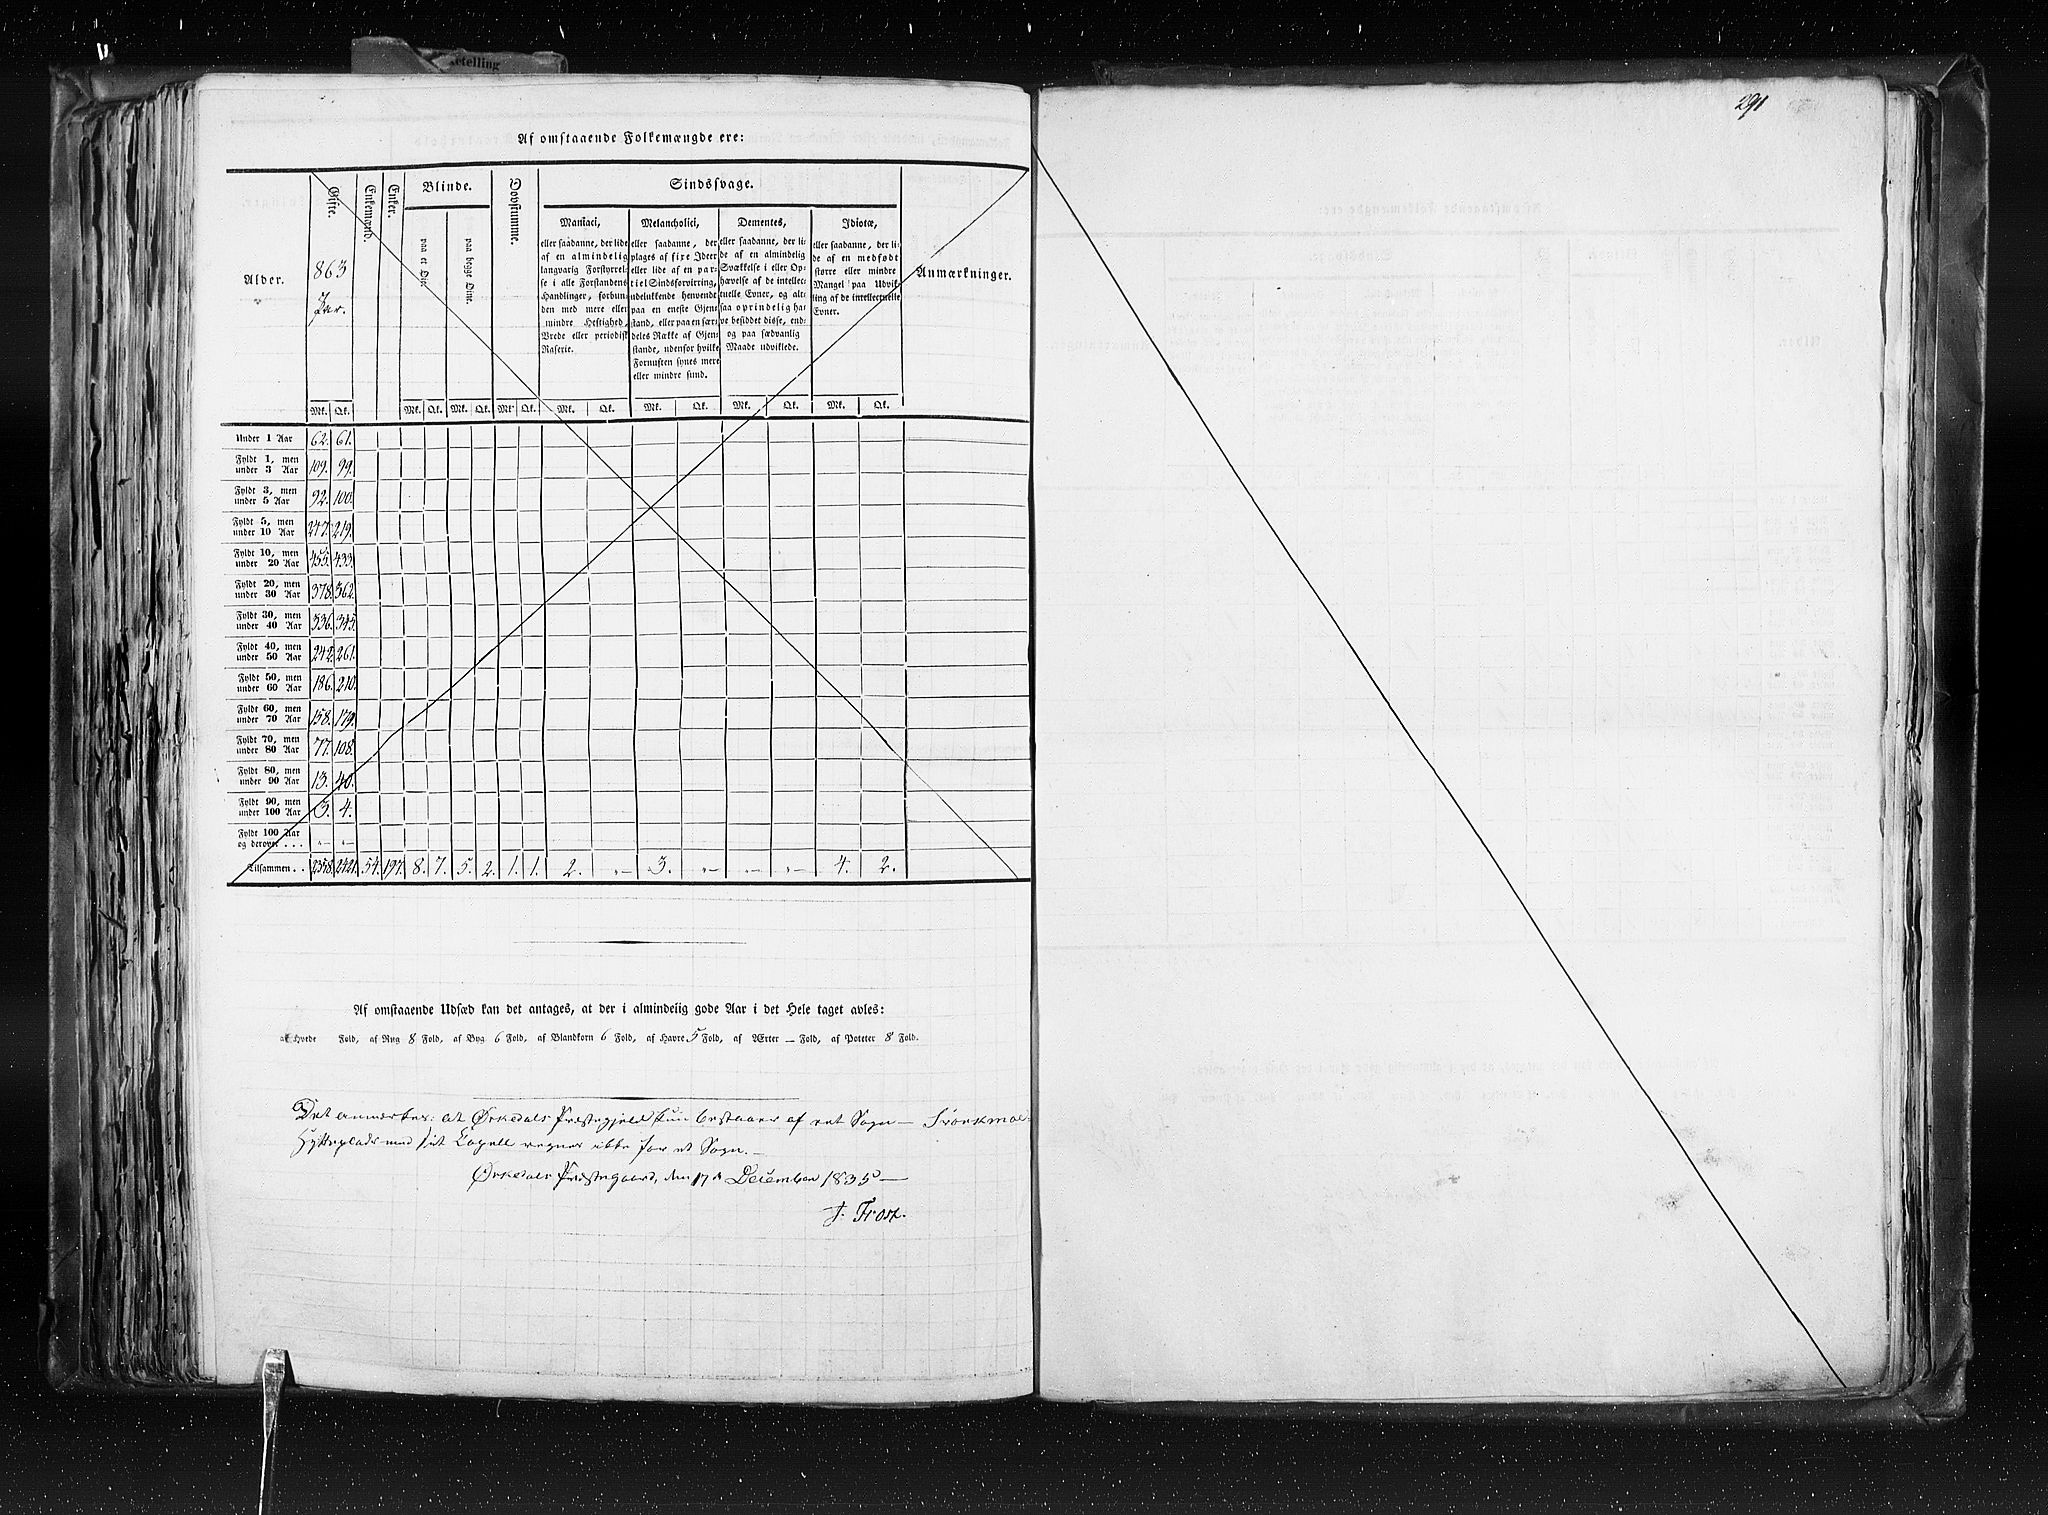 291
Af omstaaende Folkemængde ere:
Alder. Gifte. Enkemænd. Enker. Blinde. Døvstumme. Sindssvage. Anmærkninger.
863
Par.
paa et Øie. paa begge Øine.
Maniaci,
eller saadanne, der lide
af en almindelig
langvarig Forstyrrel-
se i alle Forstandens
Handlinger, forbun-
den med mere eller
mindre Heftighed,
Vrede eller periodisk
Raserie.
Melancholici,
eller saadanne, der
plages af fixe Ideer
eller lide af en par-
tiel Sindsforvirring,
udelukkende henvendt
paa en eneste Gjen-
stand, eller paa en sær-
deles Række af Gjen-
stande, udenfor hvilke
Fornuften synes mere
eller mindre sund.
Dementes,
eller saadanne, der li-
de af en almindelig
Svækkelse i eller Op-
hævelse af de intellec-
tuelle Evner, og alt-
saa oprindelig ha-
ve besiddet disse, end-
og paa sædvanlig
Maade udviklede.
Idiotæ,
eller saadanne, der li-
de af en medfødt
større eller mindre
Mangel paa Udvik-
ling af de intellectuelle
Evner.
Mk. Qk. Mk. Qk. Mk. Qk. Mk. Qk. Mk. Qk. Mk. Qk. Mk. Qk. Mk. Qk.
Under 1 Aar 62. 61.
Fyldt 1, men
under 3 Aar 109. 99.
Fyldt 3, men
under 5 Aar 92. 100.
Fyldt 5, men
under 10 Aar 247. 219.
Fyldt 10, men
under 20 Aar 455. 433.
Fyldt 20, men
under 30 Aar 378. 362.
Fyldt 30, men
under 40 Aar 336. 345.
Fyldt 40, men
under 50 Aar 242. 261.
Fyldt 50, men
under 60 Aar 186. 210.
Fyldt 60, men
under 70 Aar 158. 179.
Fyldt 70, men
under 80 Aar 77. 108.
Fyldt 80, men
under 90 Aar 13. 40.
Fyldt 90, men
under 100 Aar 3. 4.
Fyldt 100 Aar
og derover . . . „— „—
Tilsammen . . 2358. 2421. 54. 197. 8. 7. 5. 2. 1. 1. 2. „— 3. „— „— „— 4. 2.
Af omstaaende Udsæd kan det antages, at der i almindelig gode Aar i det Hele taget avles:
af Hvede Fold, af Rug 8 Fold, af Byg 6 Fold, af Blandkorn 6 Fold, af Havre 5 Fold, af Ærter — Fold, af Poteter 8 Fold.
Det anmærkes: at Ørkedals Præstegjeld kun bestaaer af eet Sogn —
Hytteplads med sit Capell regnes ikke for et Sogn. —
Ørkedals Præstegaard, den 17de December 1835 —
J. Frost.